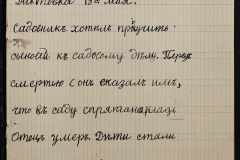 Диктовка 19го мая.
Садовникъ хотѣлъ пріучить
сыновей къ садовому дѣлу. Передъ
смертью онъ сказалъ имъ,
что въ саду спрятанъ
Отецъ умеръ. Дѣти стали